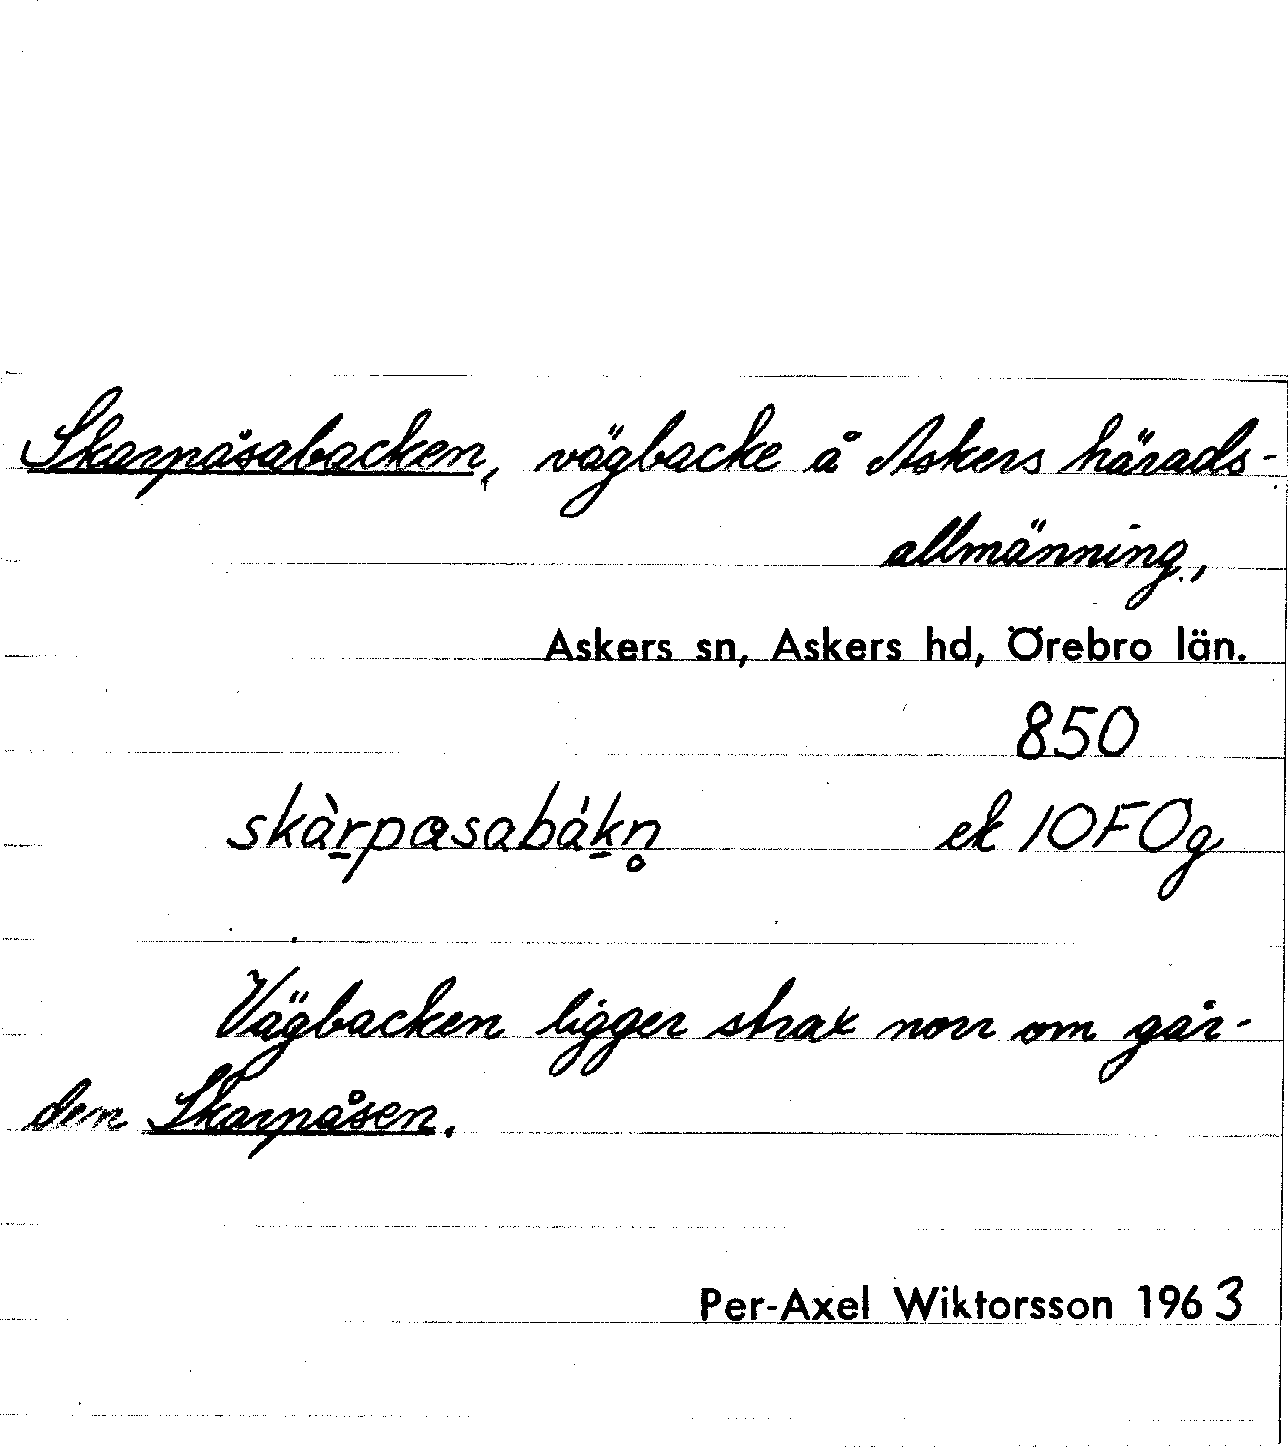 Skarpåsabacken, vägbacke å Askers härads-
allmänning,
Askers sn, Askers hd, Örebro län.
850
skàr̠pɷsabák̠n̥ ek 10FÖg
Vägbacken ligger strax norr om går-
den Skarpåsen.
Per-Axel Wiktorsson 1963